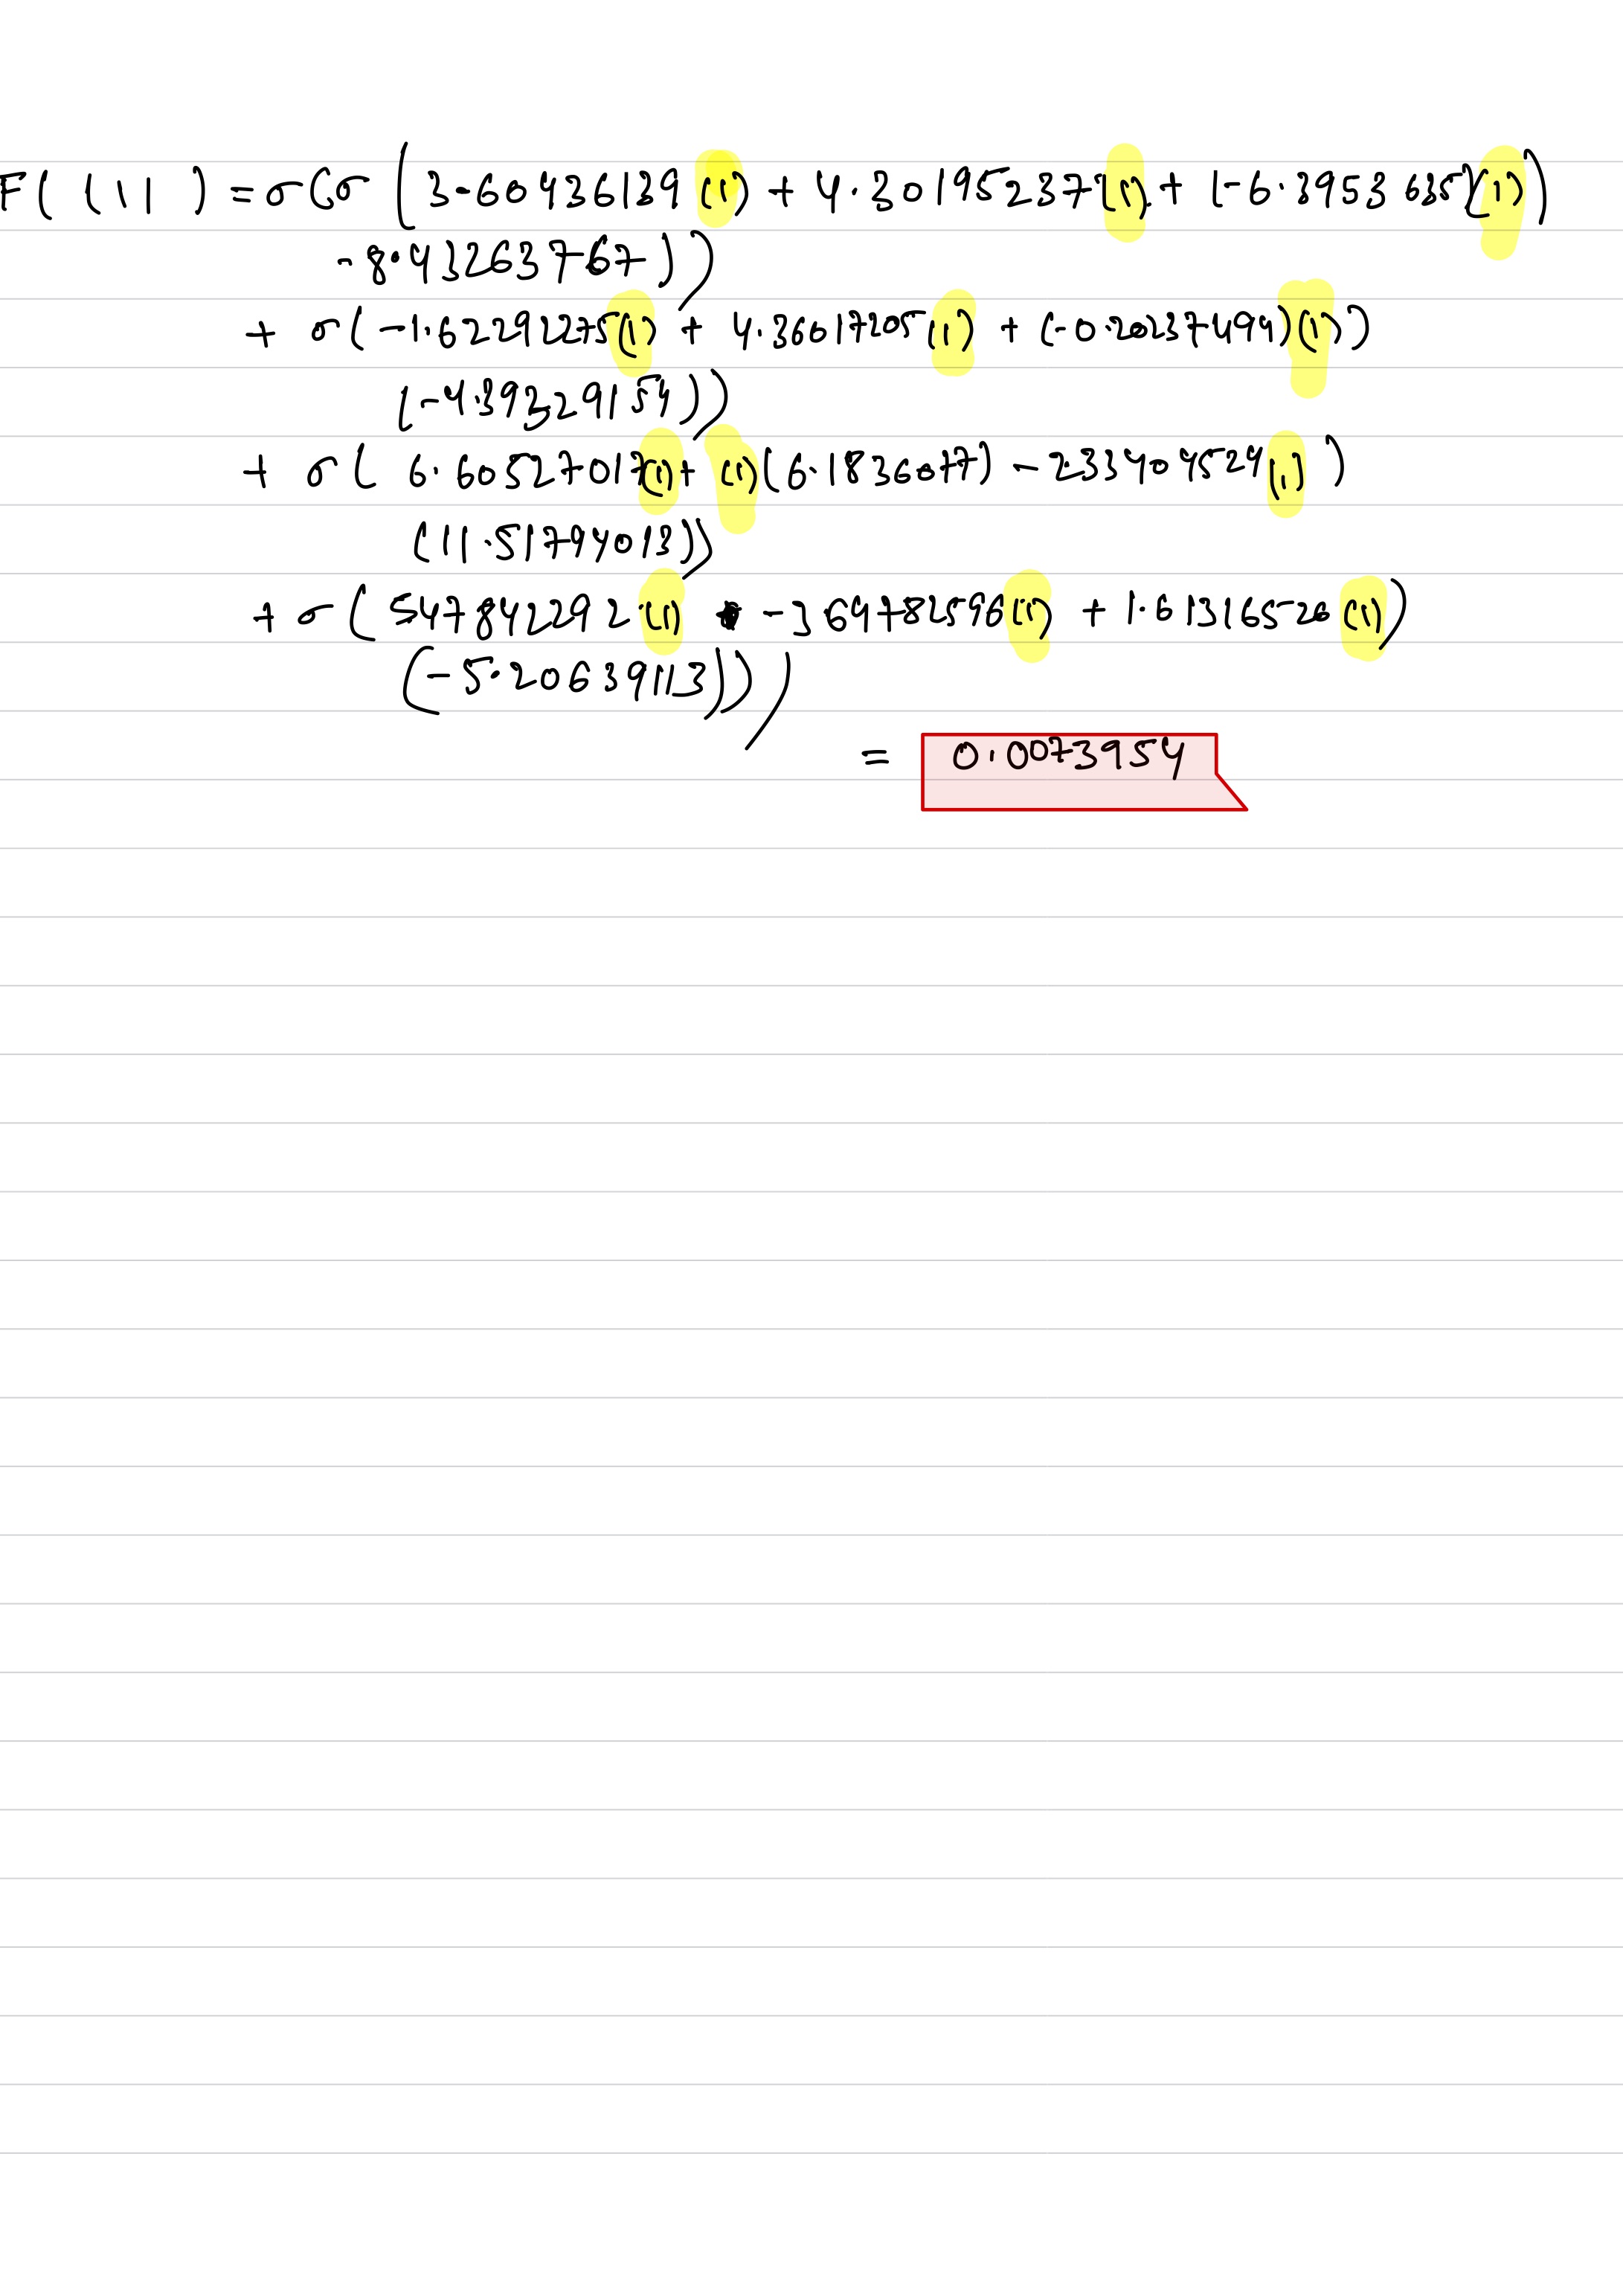 F( 111 ) = σ(σ (3.60436139 (1) + 4.201952375(1) + (-6.3953635)(1))
-8.413263767))
+ σ(-1.62292275(1) + 4.36617205(1) + (-0.20237499)(1))
(-4.393229154))
+ σ( 6.60527017(1) + (1)(6.1836077) - 2.334045244(1) )
(11.51794013))
+ σ(5.47842292(1) - 3.697825996(1) + 1.613165526(1))
(-5.206391113)))
= 0.0073954